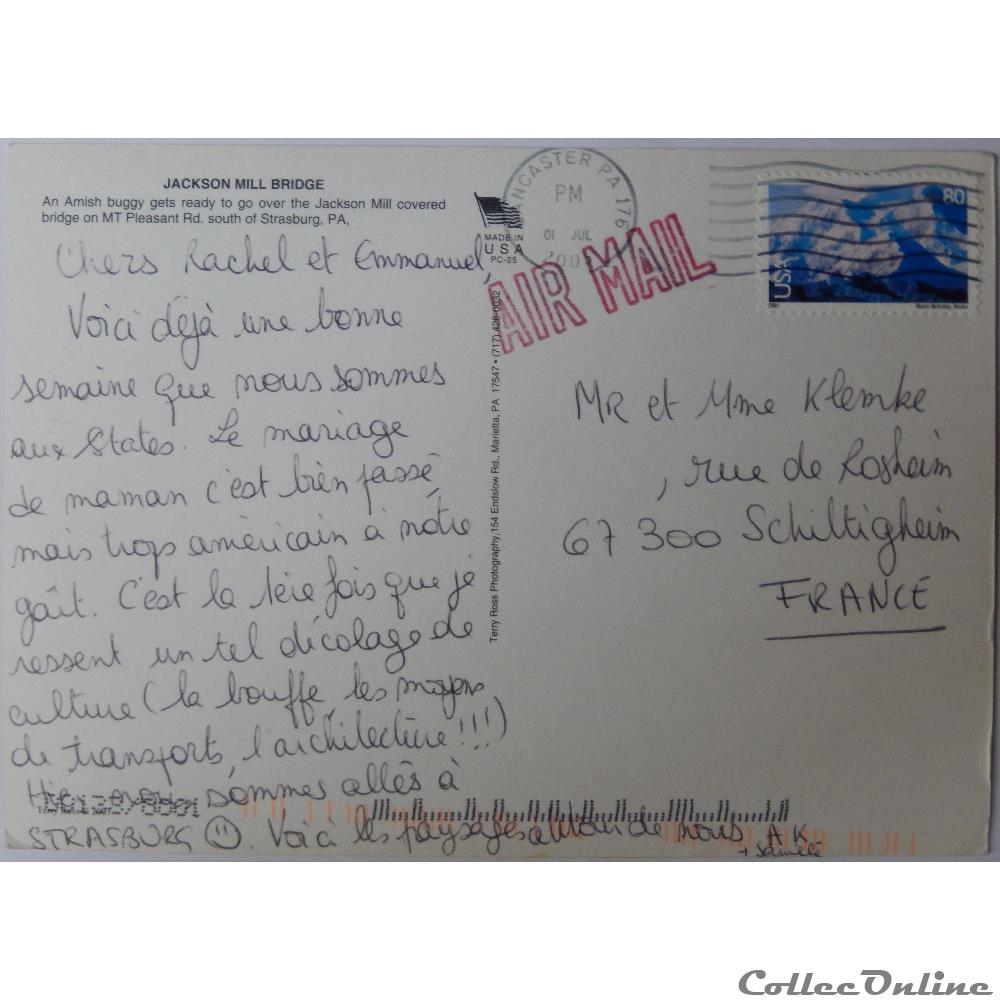 JACKSON MILL BRIDGE
An Amish buggy gets ready to go over the Jackson Mill covered
bridge on MT Pleasant Rd. south of Strasburg, PA,
Chers Rachel et Emmanuel,
Voici déjà une bonne
semaine que nous sommes
aux States. Le mariage
de maman c'est bien passé,
mais trops américain à notre
gaît. C'est la 1ère fois que je
ressent un tel décolage de
culture (la bouffe, les moyens
de transports, l'architecture !!!)
Hier sommes allés à
STRASBURG Voici les paysages autour de nous AK
+ 
MADE IN
USA
PC-25
Terry Ross Photography, 154 Endslow Rd., Marietta, PA 17547 • (717) 426-0032
LANCASTER PA 176
PM
01 JUL
AIR MAIL
80
USA
Mount McKinley, Alaska
MR et Mme Klemke
, rue de Rosheim
67 300 Schiltigheim
FRANCE
CollecOnline